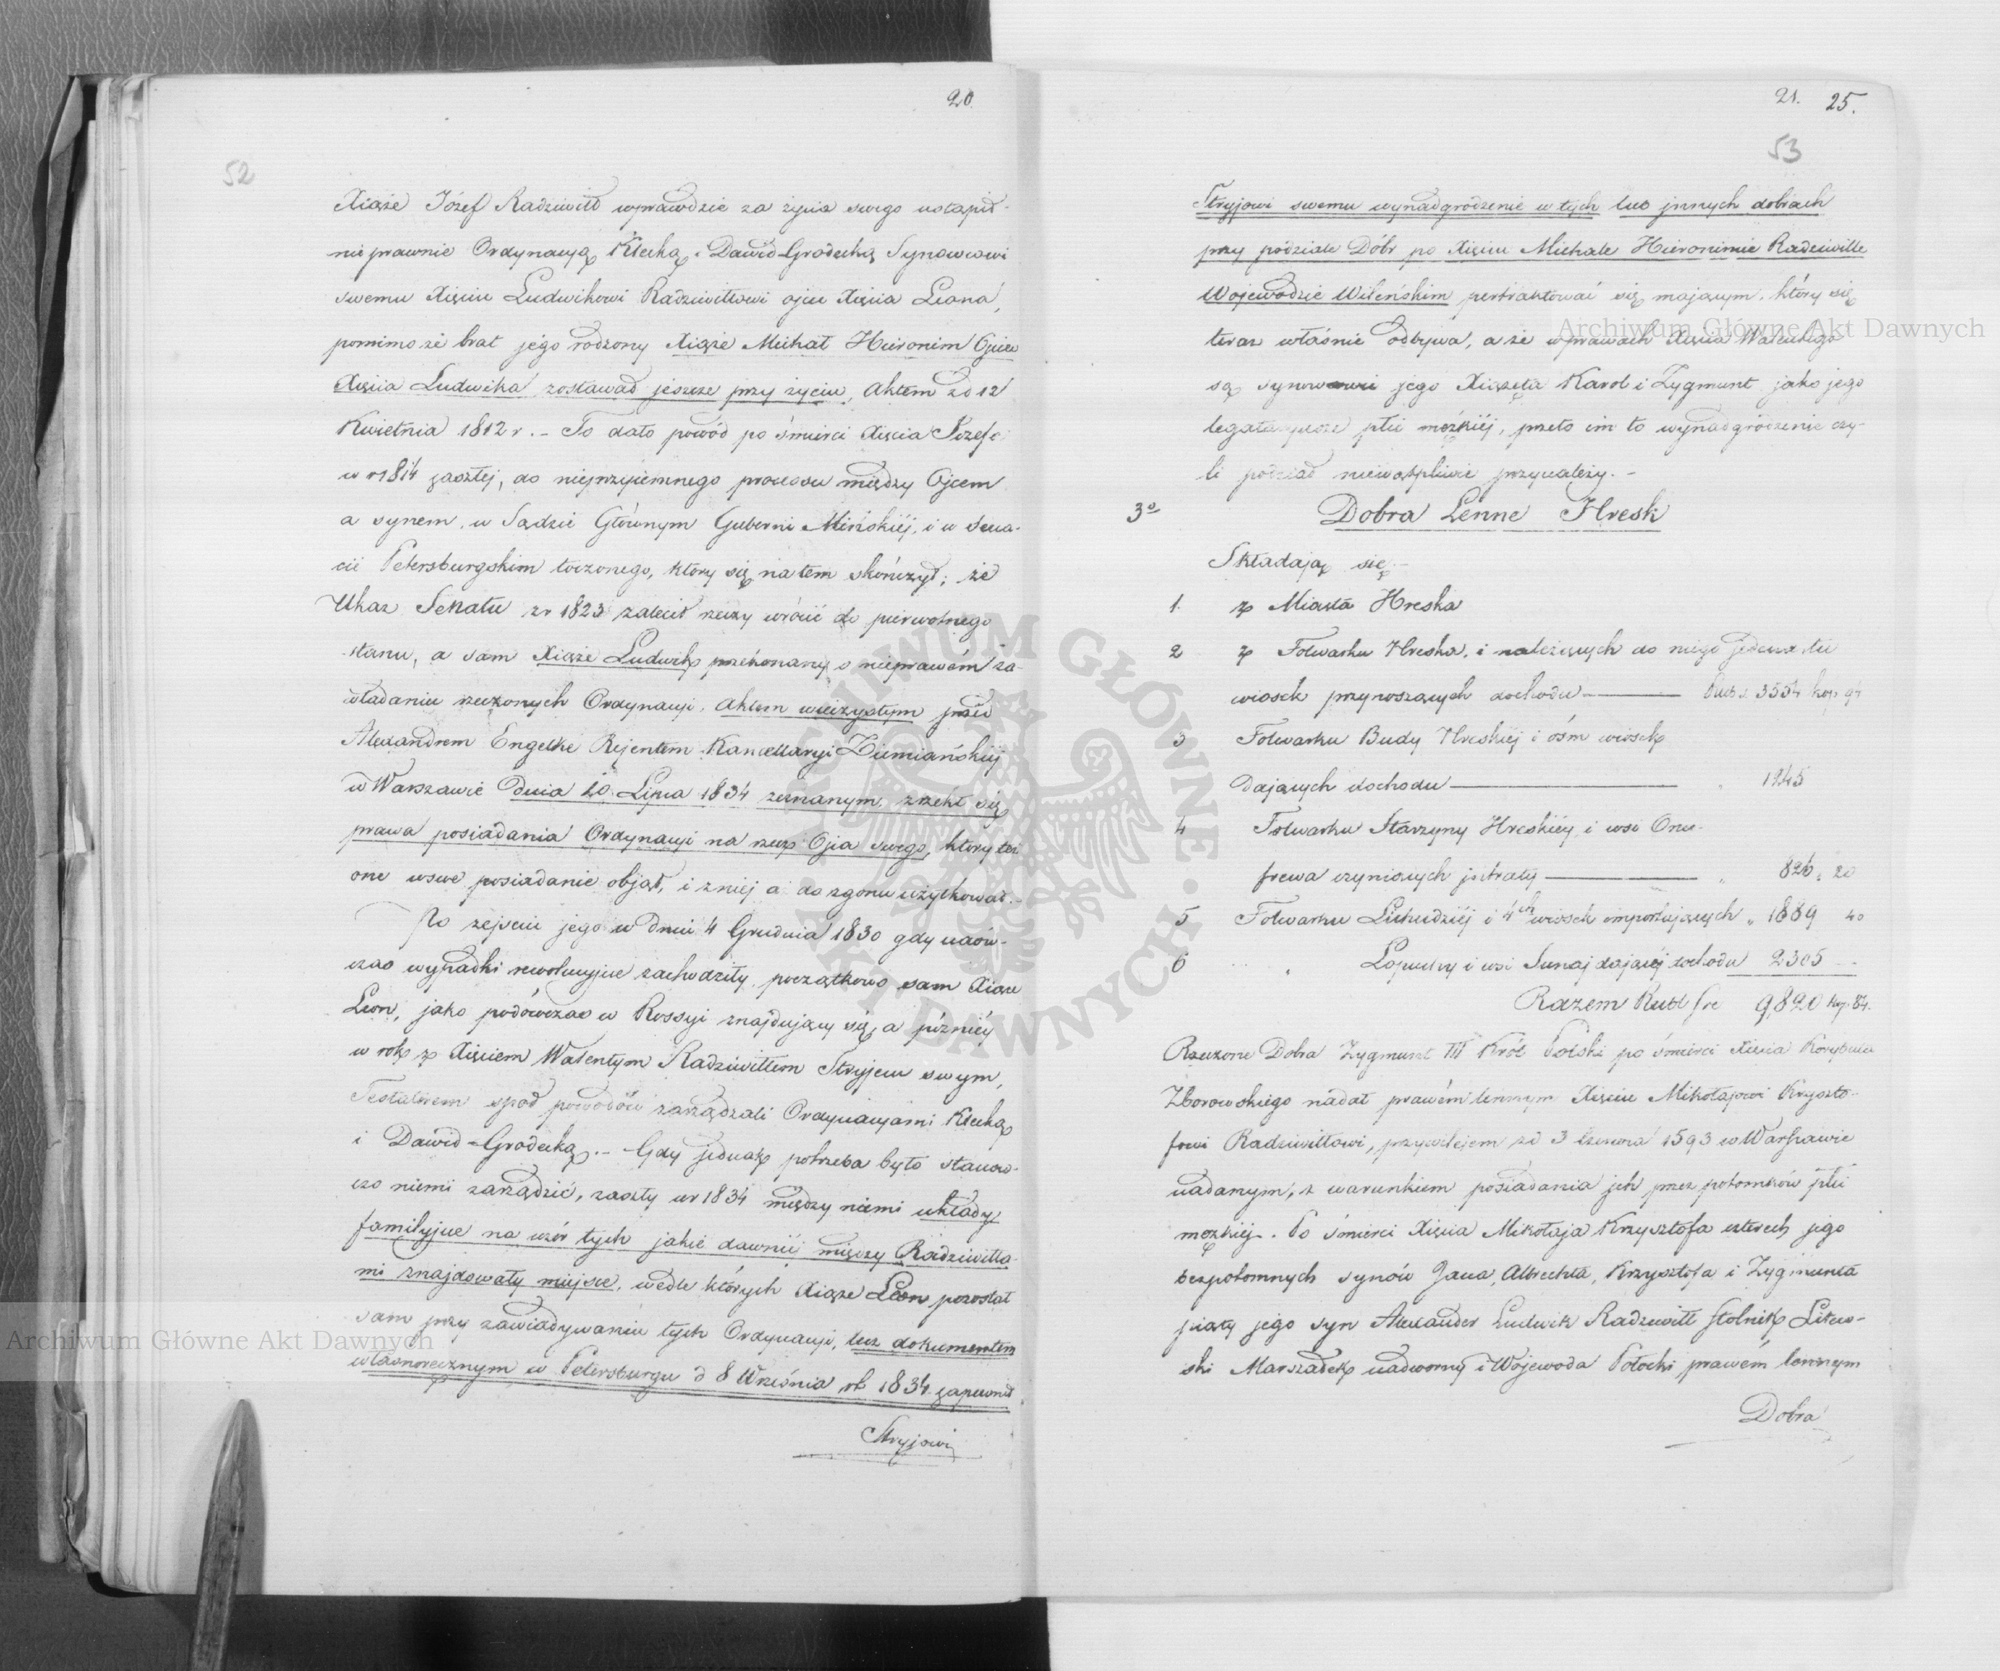 20
52
Xiąże Józef Radziwiłł wprawdzie za życia swego ustąpił
nieprawnie Ordynacyą Klecką i Dawid-Grodecką Synowcowi
swemu Xięciu Ludwikowi Radziwiłłowi ojcu Xięcia Leona,
pomimo że brat jego rodzony Xiąże Michał Hieronim Ojciec
Xięcia Ludwika zostawał jeszcze przy życiu, Aktem zd 12
Kwietnia 1812 r. – To dało powód po śmierci Xięcia Józefa
w r 1814 zaszłej, do nieprzyjemnego processu między Ojcem
a synem, w Sądzie Głównym Guberni Mińskiéj, i w Sena-
cie Petersburgskim toczonego, który się na tem skończył; że
Ukaz Senatu zr 1823 zalecił rzeczy wrócić do pierwotnego
stanu, a sam Xiąże Ludwik przekonany o nieprawém za-
władaniu rzeczonych Ordynacyi, Aktem wieczystym przed
Alexandrem Engelke Rejentem Kancellaryi Ziemiańskiéj
w Warszawie dnia 20 Lipca 1834 zeznanym, zrzekł się
prawa posiadania Ordynacyi na rzecz Ojca swego, który też
one wswe posiadanie objął, i zniéj a do zgonu użytkował.–
Po zejściu jego w dniu 4 Grudnia 1830 gdy naów-
czas wypadki rewolucyjne zachodziły, początkowo sam Xiąże
Leon, jako podówczas w Rossyi znajdujący się, a późniéj
w rok z Xięciem Walentym Radziwiłłem Stryjem swym,
Testatorem spod powodów zarządzali Ordynacyami Klecką
i Dawid-Grodecką. – Gdy jednak potrzeba było stanow-
czo niemi zarządzić, zaszły w r 1834 między niemi układy
familyjne na wzór tych jakie dawniéj między Radziwiłła-
mi znajdowały miejsce, wedle których Xiąże Leon pozostał
sam przy zawiadywaniu tych Ordynacyi, lecz dokumentem
własnoręcznym w Petersburgu d 8 Września rb 1834 zapewnił
Stryjowi
21. 25.
53
Stryjowi swemu wynadgrodzenie w tych lub jnnych dobrach
przy podziale Dóbr po Xięciu Michale Hieronimie Radziwille
Wojewodzie Wileńskim pertraktować się mającym, który się
teraz właśnie odbywa, a że wprawach Xięcia Walentego
są synowcowie jego Xiążęta Karol i Zygmunt jako jego
legataryusze płci męzkiéj, przeto im to wynadgrodzenie czy-
li podział niewątpliwie przynależy. –
3º Dobra Lenne Hresk
Składają się –
1. z Miasta Hreska
2 z Folwarku Hreska, i należących do niego jedenastu
wiosek przynoszących dochodu — Rub. s. 3554 kop. 94
3 Folwarku Budy Hreskiéj i óśm wiosek
dających dochodu — " 1245
4 Folwarku Starzyny Hreskiéy i wsi Onu-
frewa czyniących jntraty — " 826 " 20
5 Folwarku i 4ch wiosek importujących " 1889 40
6 " i wsi dającéj dochodu 2305 –
Razem Rubl sre 9,820 kop. 84.
Rzeczone Dobra Zygmunt III Król Polski po śmierci Xięcia Korybuta
Zborowskiego nadał prawém lennym Xięciu Mikołajowi Krysztо-
fowi Radziwiłłowi, przywilejem zd 3 Czerwca 1593 w Warszawie
nadanym, z warunkiem posiadania jch przez potomków płci
męzkiéj. Po śmierci Xięcia Mikołaja Krzysztofa czterech jego
bezpotomnych synów Jana, Albrechta, Krzysztofa i Zygmunta
piąty jego syn Alexander Ludwik Radziwiłł Stolnik Litew-
ski Marszałek nadworny i Wojewoda Połocki prawém lennym
Dobra
Archiwum Główne Akt Dawnych
Archiwum Główne Akt Dawnych
ARCHIWUM GŁÓWNE AKT DAWNYCH